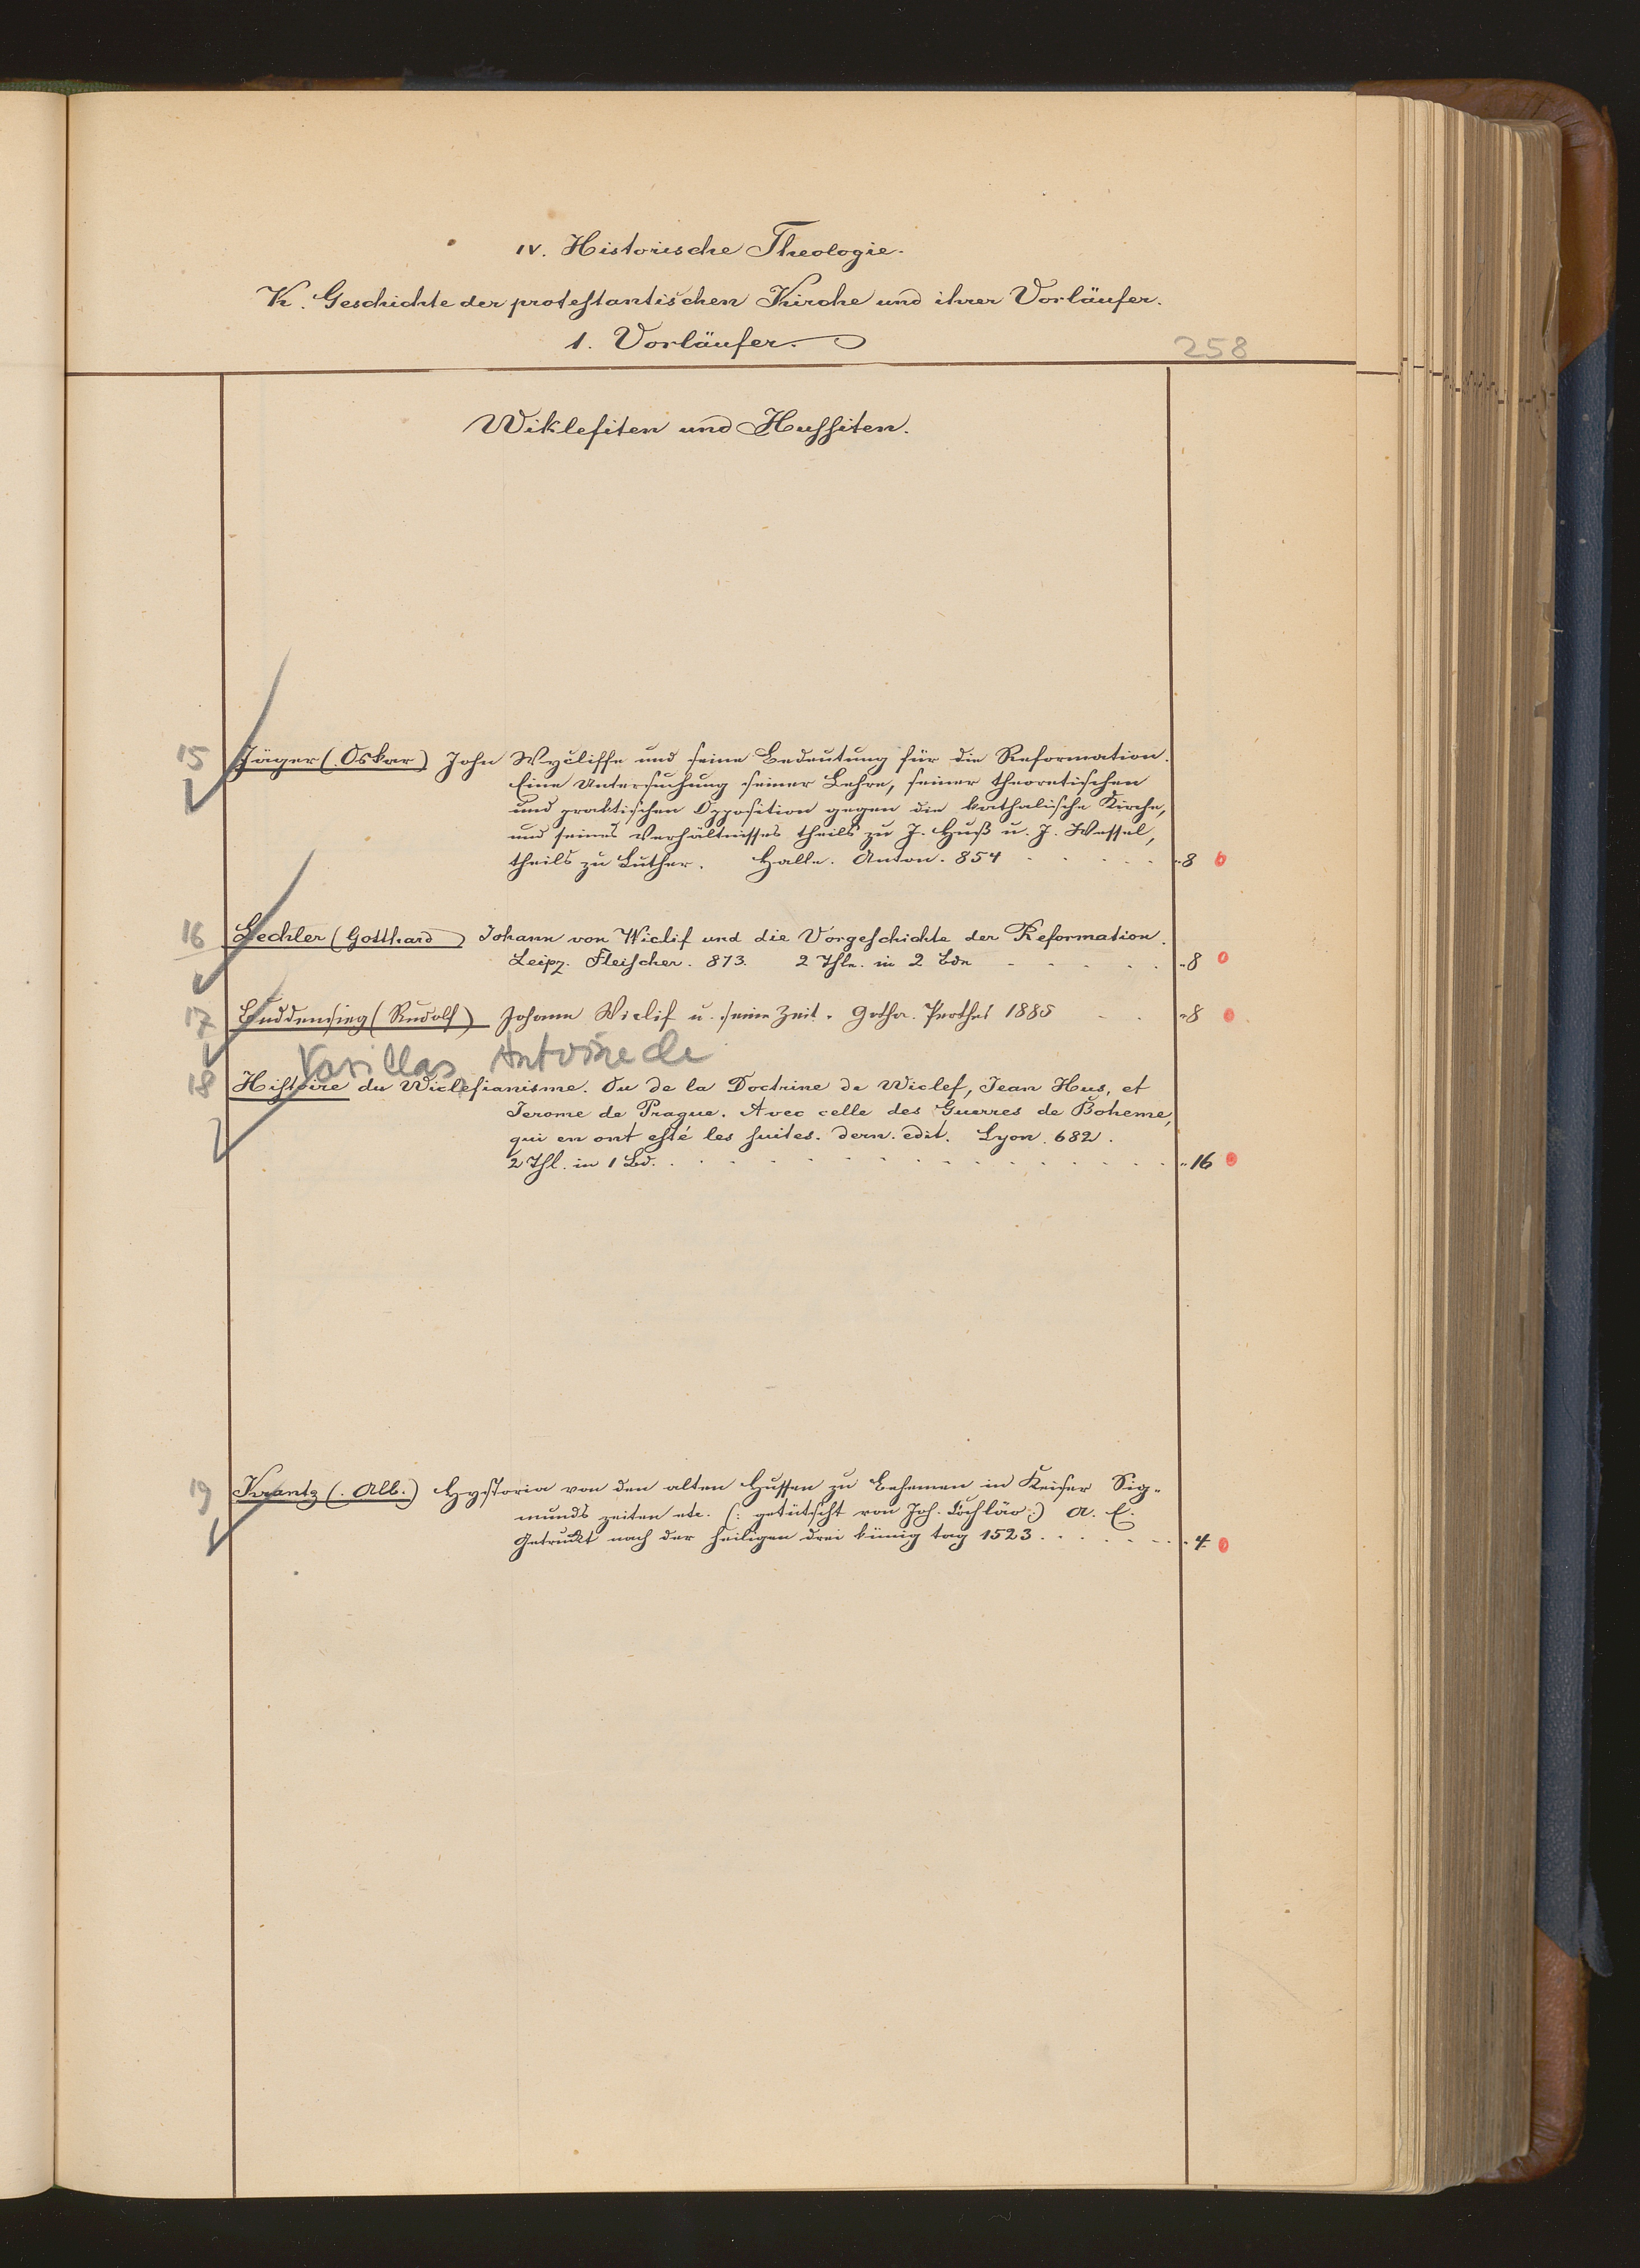 IV. Historische Theologie.
K. Geschichte der protestantischen Kirche und ihrer Vorläufer.
1. Vorläufer.
258
Wiklefiten und Hussiten.
15 Jäger (Oskar) John Wycliffe und seine Bedeutung für die Reformation.
Eine Untersuchung seiner Lehre, seiner theoretischen
und praktischen Opposition gegen die katholische Kirche,
und seines Verhältnisses theils zu J. Huß u. J. Wessel,
theils zu Luther. Halle. Anton. 854 . . . . . „8
16 Lechler (Gotthard) Johann von Wiclif und die Vorgeschichte der Reformation.
Leipz. Fleischer. 873. 2 Thle. in 2 Bdn . . . . . „8
17 Buddensieg (Rudolf) Johann Wiclif u. seine Zeit. Gotha. Perthes 1885 . . „8
Varillas, Antoine de
18 Histoire du Wiclefianisme. Ou de la Doctrine de Wiclef, Jean Hus, et
Jerome de Prague. Avec celle des Guerres de Boheme,
qui en ont esté les suites. dern. edit. Lyon. 682.
2 Thl. in 1 Bd. . . . . . . . . . . . „16
19 Krantz (Alb.) Hystoria von den alten Hussen zu Behemen in Keiser Sig-
munds zeiten etc. (: getütscht von Joh. Cochläo :) A. E.
Getruckt nach der heiligen drei künig tag 1523 . . . . . „4